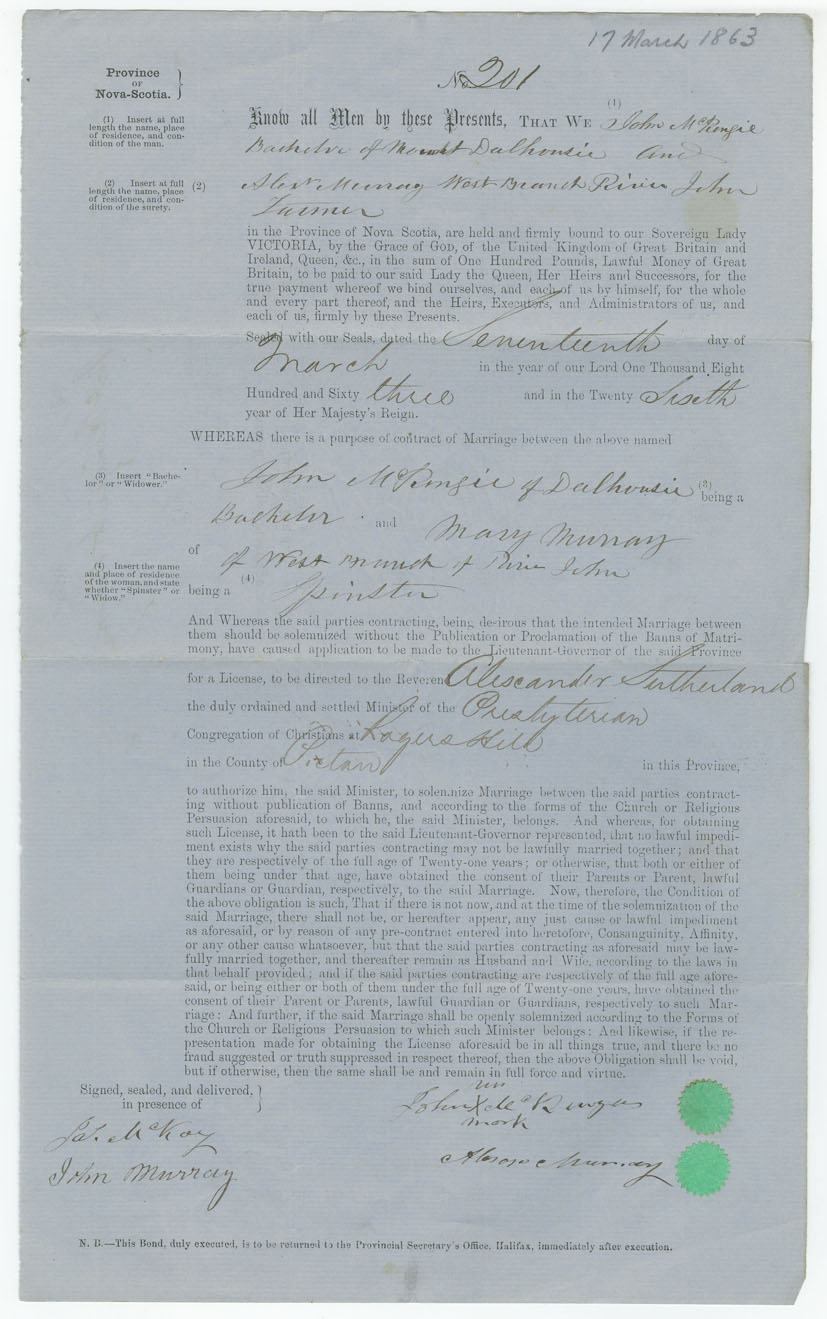 17 March 1863
Province
OF
Nova-Scotia.
No 201
(1) Insert at full
length the name, place
of residence, and con-
dition of the man.
(1)
Know all Men by these Presents, THAT WE John McKenzie
Bachelor of Mount Dalhousie and
(2) Insert at full
length the name, place
of residence, and con-
dition of the surety.
(2) Alexr Murray West Branch River John
Farmer
in the Province of Nova Scotia, are held and firmly bound to our Sovereign Lady
VICTORIA, by the Grace of GOD, of the United Kingdom of Great Britain and
Ireland, Queen, &c., in the sum of One Hundred Pounds, Lawful Money of Great
Britain, to be paid to our said Lady the Queen, Her Heirs and Successors, for the
true payment whereof we bind ourselves, and each of us by himself, for the whole
and every part thereof, and the Heirs, Executors, and Administrators of us, and
each of us, firmly by these Presents.
Sealed with our Seals, dated the Seventeenth day of
March in the year of our Lord One Thousand Eight
Hundred and Sixty three and in the Twenty Sixth
year of Her Majesty's Reign.
WHEREAS there is a purpose of contract of Marriage between the above named
(3) Insert "Bache-
lor" or "Widower."
John McKenzie of Dalhousie (3) being a
Bachelor and Mary Murray
of of West Branch of River John
(4) Insert the name
and place of residence
of the woman, and state
whether "Spinster" or
"Widow."
being a (4) Spinster
And Whereas the said parties contracting, being desirous that the intended Marriage between
them should be solemnized without the Publication or Proclamation of the Banns of Matri-
mony, have caused application to be made to the Lieutenant-Governor of the said Province
for a License, to be directed to the Reverend Alexander Sutherland
the duly ordained and settled Minister of the Presbyterian
Congregation of Christians at Rogers Hill
in the County of Pictou in this Province,
to authorize him, the said Minister, to solemnize Marriage between the said parties contract-
ing without publication of Banns, and according to the forms of the Church or Religious
Persuasion aforesaid, to which he, the said Minister, belongs. And whereas, for obtaining
such License, it hath been to the said Lieutenant-Governor represented, that no lawful impedi-
ment exists why the said parties contracting may not be lawfully married together; and that
they are respectively of the full age of Twenty-one years; or otherwise, that both or either of
them being under that age, have obtained the consent of their Parents or Parent, lawful
Guardians or Guardian, respectively, to the said Marriage. Now, therefore, the Condition of
the above obligation is such, That if there is not now, and at the time of the solemnization of the
said Marriage, there shall not be, or hereafter appear, any just cause or lawful impediment
as aforesaid, or by reason of any pre-contract entered into heretofore, Consanguinity, Affinity,
or any other cause whatsoever, but that the said parties contracting as aforesaid may be law-
fully married together, and thereafter remain as Husband and Wife, according to the laws in
that behalf provided; and if the said parties contracting are respectively of the full age afore-
said, or being either or both of them under the full age of Twenty-one years, have obtained the
consent of their Parent or Parents, lawful Guardian or Guardians, respectively to such Mar-
riage: And further, if the said Marriage shall be openly solemnized according to the Forms of
the Church or Religious Persuasion to which such Minister belongs: And likewise, if the re-
presentation made for obtaining the License aforesaid be in all things true, and there be no
fraud suggested or truth suppressed in respect thereof, then the above Obligation shall be void,
but if otherwise, then the same shall be and remain in full force and virtue.
Signed, sealed, and delivered,
in presence of
his
John X McKenzie
mark
Jas. McKay
John Murray
Alexr Murray
N. B.—This Bond, duly executed, is to be returned to the Provincial Secretary's Office, Halifax, immediately after execution.